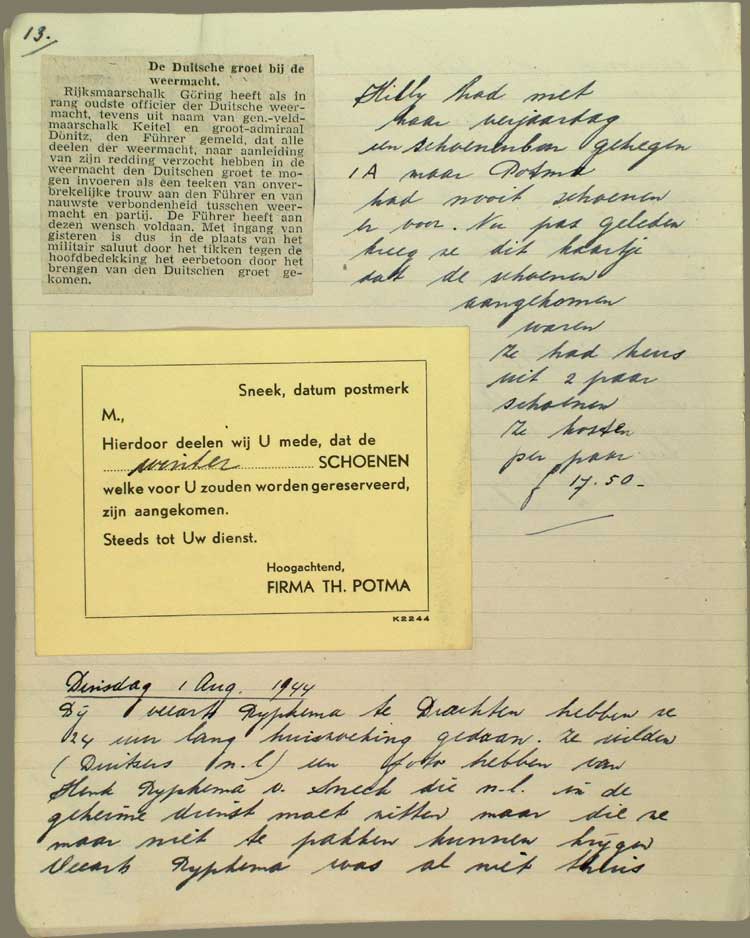 13.
De Duitsche groet bij de
weermacht.
Rijksmaarschalk Göring heeft als in
rang oudste officier der Duitsche weer-
macht, tevens uit naam van gen.-veld-
maarschalk Keitel en groot-admiraal
Dönitz, den Führer gemeld, dat alle
deelen der weermacht, naar aanleiding
van zijn redding verzocht hebben in de
weermacht den Duitschen groet te mo-
gen invoeren als een teeken van onver-
brekelijke trouw aan den Führer en van
nauwste verbondenheid tusschen weer-
macht en partij. De Führer heeft aan
dezen wensch voldaan. Met ingang van
gisteren is dus in de plaats van het
militair saluut door het tikken tegen de
hoofdbedekking het eerbetoon door het
brengen van den Duitschen groet ge-
komen.
Hilly had met
haar verjaardag
een schoenenbon gekregen
1A maar Potma
had nooit schoenen
er voor. Nu pas geleden
kreeg ze dit kaartje
dat de schoenen
aangekomen
waren
Ze had keus
uit 2 paar
schoenen
Ze kosten
per paar
f 17.50-
Sneek, datum postmerk
M.,
Hierdoor deelen wij U mede, dat de
winter SCHOENEN
welke voor U zouden worden gereserveerd,
zijn aangekomen.
Steeds tot Uw dienst.
Hoogachtend,
FIRMA TH. POTMA
K2244
Dinsdag 1 Aug. 1944
Bij veearts Ryphema te Drachten hebben ze
24 uur lang huiszoeking gedaan. Ze wilden
(Duitsers n.l) een foto hebben van
Henk Ryphema v. Sneek die n.l. in de
geheime dienst moet zitten maar die ze
maar niet te pakken kunnen krijgen
Veearts Ryphema was al niet thuis